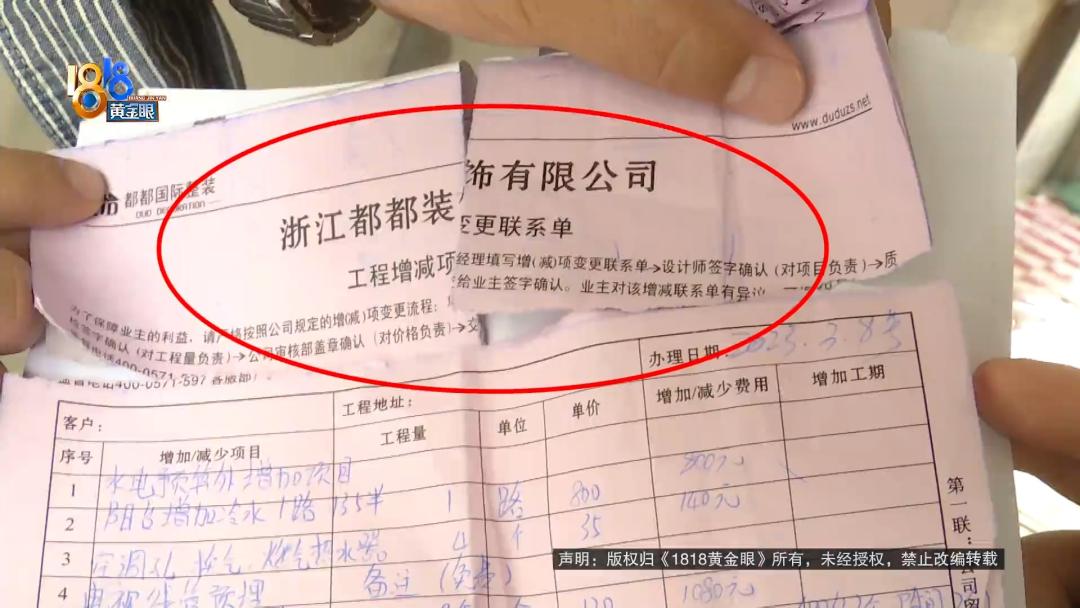 1818
黄金眼
www.duduzs.net
都都国际整装
DUD DECORATION
浙江都都装饰有限公司
工程增减项变更联系单
为了保障业主的利益，请严格按照公司规定的增(减)项变更流程：
经理填写增(减)项变更联系单→设计师签字确认（对项目负责）→质
检签字确认（对工程量负责）→公司审核部盖章确认（对价格负责）→交
给业主签字确认。业主对该增减联系单有异议
监督电话400-0571-397
办理日期：2023.3.8号
客户：
工程地址：
序号
增加/减少项目
工程量
单位
单价
增加/减少费用
增加工期
1 水电预算外增加项目 800元
2 阳台增加冷水1路 135半 1 路 800 140元
3 空调孔 热水器 4 个 35
4 电视线管预埋 备注（免费） 1080元
第一联：公司留
声明：版权归《1818黄金眼》所有，未经授权，禁止改编转载